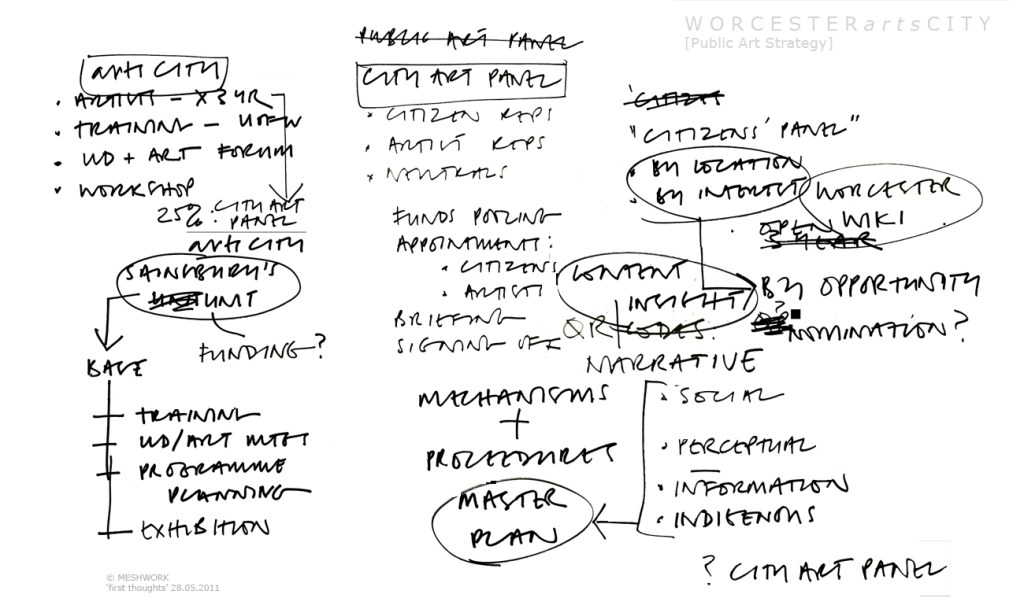 WORCESTERartsCITY
[Public Art Strategy]
arti CITY
• ARTISTS - X 3 YR
• TRAINING - UOFW
• UD + ART FORUM
• WORKSHOP
25%: CITY ART
PANEL
arti CITY
SAINSBURY'S
UNIT
FUNDING?
BASE
TRAINING
UD/ART MTGS
PROGRAMME
PLANNING
EXHIBITION
PUBLIC ART PANEL
CITY ART PANEL
• CITIZEN REPS
• ARTIST REPS
• NEUTRALS
FUNDS POOLING
APPOINTMENT:
• CITIZENS
• ARTISTS
BRIEFING
SIGNING OFF
MECHANISMS
+
PROCEDURES
MASTER
PLAN
"CITIZENS' PANEL"
• BY LOCATION
• BY INTEREST
WORCESTER
WIKI
• OPEN
CONTENT
INSIGHT/
QR CODES.
NARRATIVE
BY OPPORTUNITY
?
NOMINATION?
• SOCIAL
• PERCEPTUAL
• INFORMATION
• INDIGENOUS
? CITY ART PANEL
© MESHWORK
'first thoughts' 28.05.2011